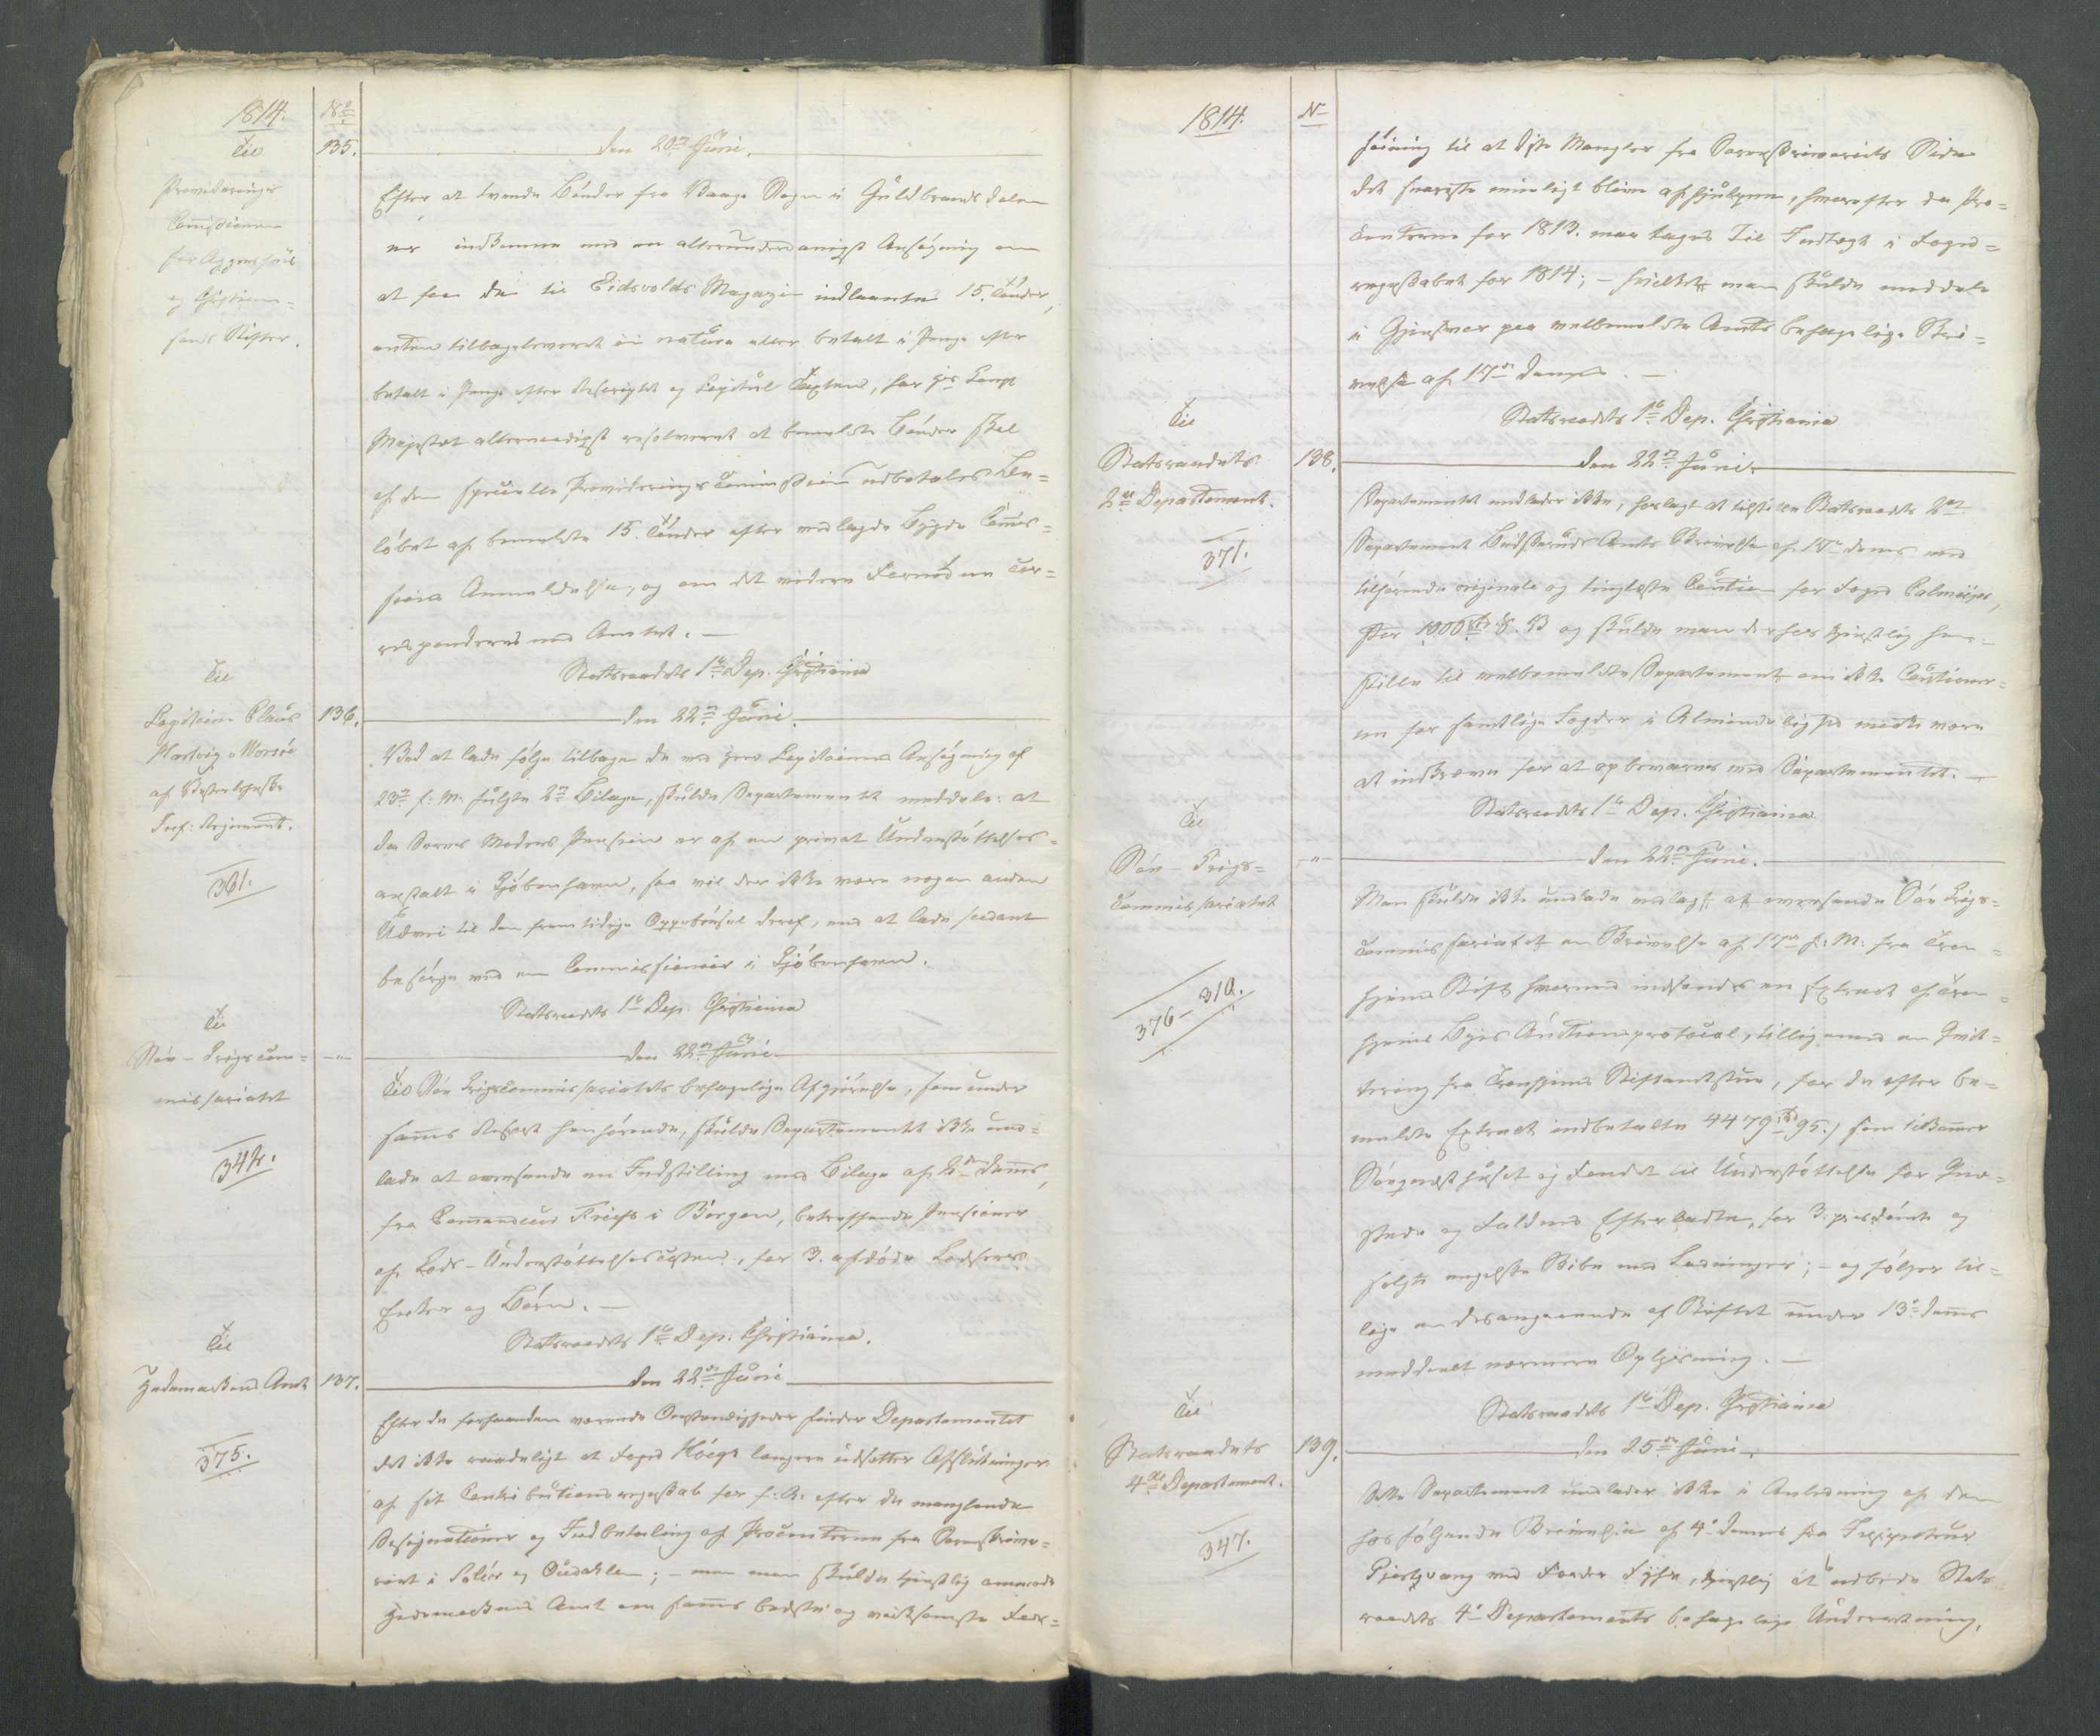 1814.
No
Til
Providerings
Commissionen
for Aggershuus
og Christian=
sands Stifter.
135.
den 20de Juni.
Efter at tvende Bönder fra Vaage Sogn i Guldbrandsdalen
er indkommen med en allerunderdanigst Ansögning om
at faae de til Eidsvolds Magazin indlaante 15. Tönder,
enten tilbageleveret in natura eller betalt i Penge efter
betalt i Penge efter Rescriptet og Capitul Taxten, har Hs Kongl
Majestæt allernaadigst resolveret at bemeldte Bönder skal
af den specielle Provideringscommission udbetales Be=
löbet af bemeldte 15. Tönder efter vedlagde Bygde Commis=
sions Anmeldelse; og om det videre Fornödne Cor=
responderes med Amtet. —
Statsraadets 1ste Dep. Christiania
Til
Capitain Claus
Hartvig Worsöe
af Vesterlehnske
Inf: Regiment.
361.
136.
den 22de Juni.
Ved at lade fölge tilbage de med Hrr Capitainens Ansögning af
23de f: M: fulgte 2de Bilage, skulde Departementet meddele: at
da Deres Moders Pension er af en privat Understöttelses=
anstalt i Kjöbenhavn, saa vil der ikke være nogen anden
Udvei til den fremtidige Oppebörsel deraf, end at lade saadant
besörge ved en Commissionair i Kjöbenhavn.
Statsraadets 1ste Dep. Christiania
Til
Söe-Krigscom=
missariatet
342.
—"—
den 22de Juni
Til Söe Krigscommissariatets behagelige Afgjörelse, som under
samme Resort henhörende, skulde Departementet ikke und=
lade at oversende en Indstilling med Bilage af 2den dennes,
fra Commandeur Fries i Bergen, betreffende Pensioner
af Lods-Understöttelsescassen, for 3. afdöde Lodsers
Enker og Börn. —
Statsraadets 1ste Dep. Christiania.
Til
Hedemarkens Amt
375.
137.
den 22de Juni
Efter de forhaanden værende Omstændigheder finder Departementet
det ikke raadeligt at Foged Höegs længere udsætter Afslutninger
af sit Contributionsregnskab for f: A: efter de manglende
Designationer og Indbetaling af Procenterne fra Sorenskriver=
riet i Solöer og Oudahlen; — men man skulde tjenstlig anmode
Hedemarkens Amt om sammes bedste og virksomste For=
1814.
No
föining til at disse Mangler fra Sorenskriveriets Side
det snareste mueligt bliver afhjulpen, hvorefter da Pro=
centerne for 1813. maa tages til Indtægt i Foged=
regnskabet for 1814; — hvilket man skulde meddele
i Gjensvar paa velbemeldte Amts behagelige Skri=
velse af 17de dennes. —
Statsraadets 1ste Dep. Christiania
Til
Statsraadets
2det Departement.
371.
138.
den 22de Juni.
Departementet undlader ikke, hoslagt at tilstille Statsraadets 2det
Departement Budskeruds Amts Skrivelse af 18de dennes med
tilhörende originale og tinglæste Caution for Foged Colmeijer,
stor 1006 S. V og skulde man derhos tjenstlig hen=
stille til velbemeldte Departement om ikke Cautioner=
ne for samtlige Fogder i Almindelighed maatte være
at indkræve for at opbevares ved Departementet. —
Statsraadets 1ste Dep. Christiania
Til
Söe-Krigs=
Commissariatet
376-310.
—"—
den 22de Juni.
Man skulde ikke undlade vedlagt at oversende Söe Krigs=
Commissariatet en Skrivelse af 17de f: M: fra Tron=
hjems Stift hvorved indsendes en Extract af Tron=
hjems Byes Auctionsprotocol, tilligemed en Qvit=
tering fra Tronhjems Stiftamtstue, for de efter be=
meldte Extract indbetalte 4479 rd 95 s, som tilkommer
Söeqvæsthuset og Fondet til Understöttelse for Qvæ=
stede og Faldnes Efterladte, for 3. priisdömte og
solgte engelske Skibe med Ladninger; — og fölger til=
lige en desangaaende af Stiftet under 13de dennes
meddeelt nærmere Oplysning. —
Statsraadets 1ste Dep. Christiania
Til
Statsraadets
4de Departement.
347.
139.
den 25de Juni.
Dette Departement undlader ikke i Anledning af den
hosfölgende Skrivelse af 4de dennes fra Inspecteur
ved Fyhr, tjenstlig at udbede Stats=
raadets 4de Departements behagelige Underretning,